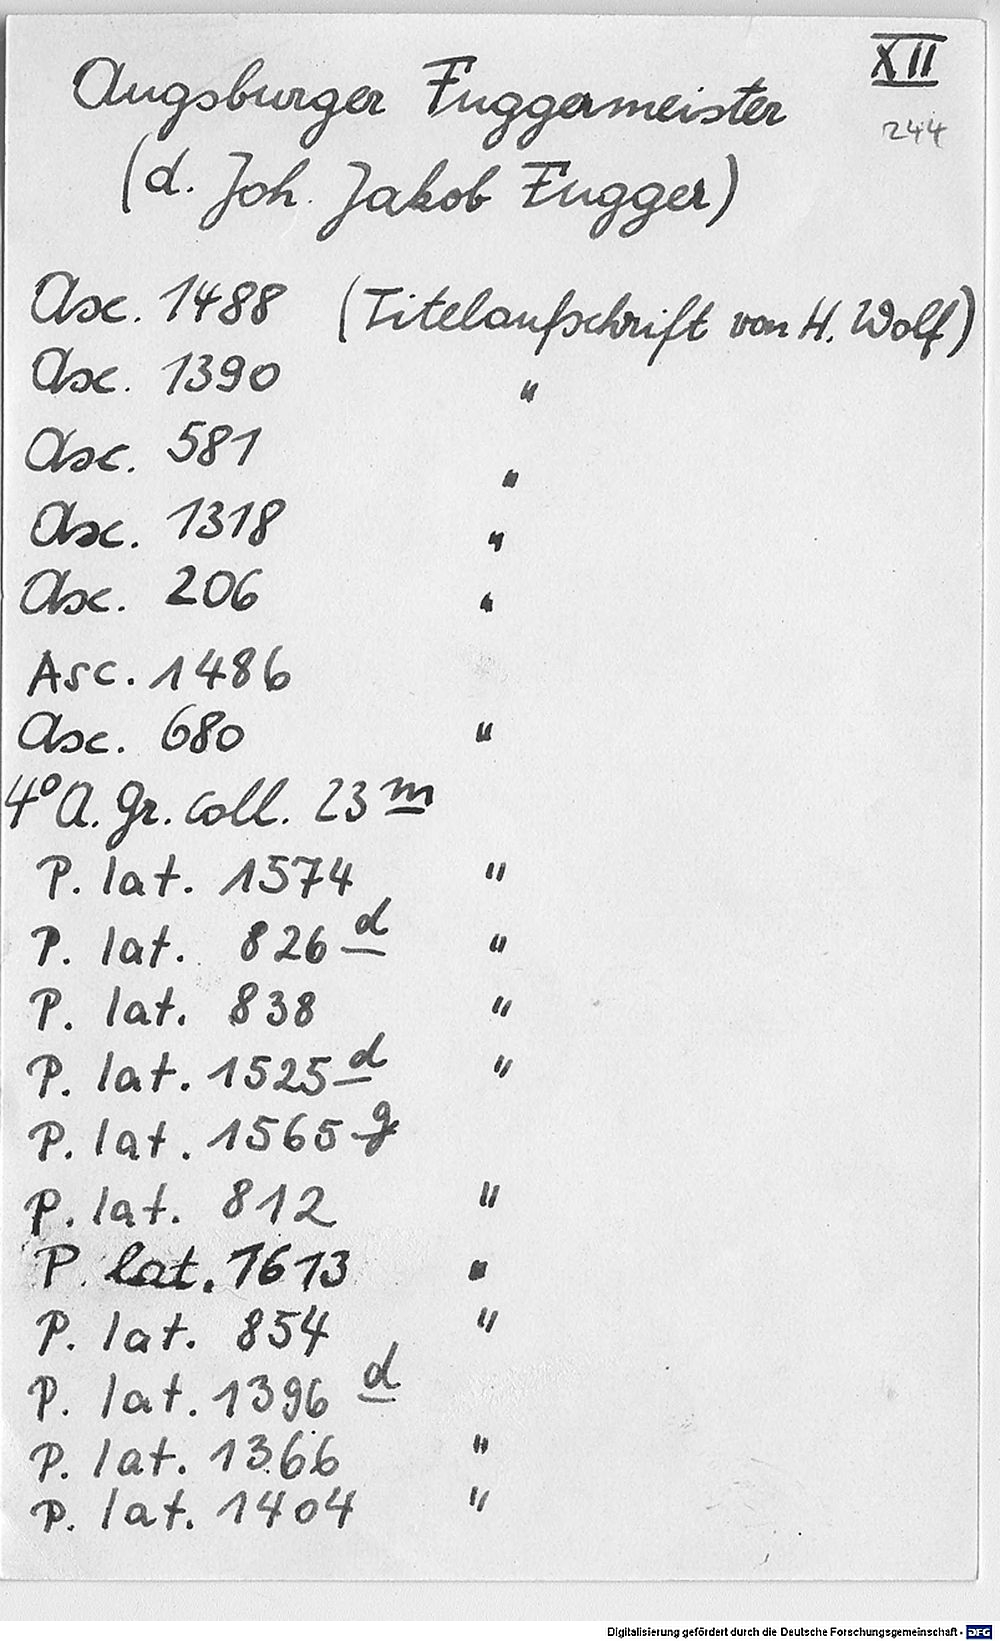 XII
244
Augsburger Fuggermeister
(d. Joh. Jakob Fugger)
Asc. 1488 (Titelaufschrift von H. Wolf)
Asc. 1390 "
Asc. 581 "
Asc. 1318 "
Asc. 206 "
Asc. 1486
Asc. 680 "
4° A. gr. coll. 23 m
P. lat. 1574 "
P. lat. 826 d "
P. lat. 838 "
P. lat. 1525 d "
P. lat. 1565 g
P. lat. 812 "
P. lat. 1613 "
P. lat. 854 "
P. lat. 1396 d
P. lat. 1366 "
P. lat. 1404 "
Digitalisierung gefördert durch die Deutsche Forschungsgemeinschaft - DFG